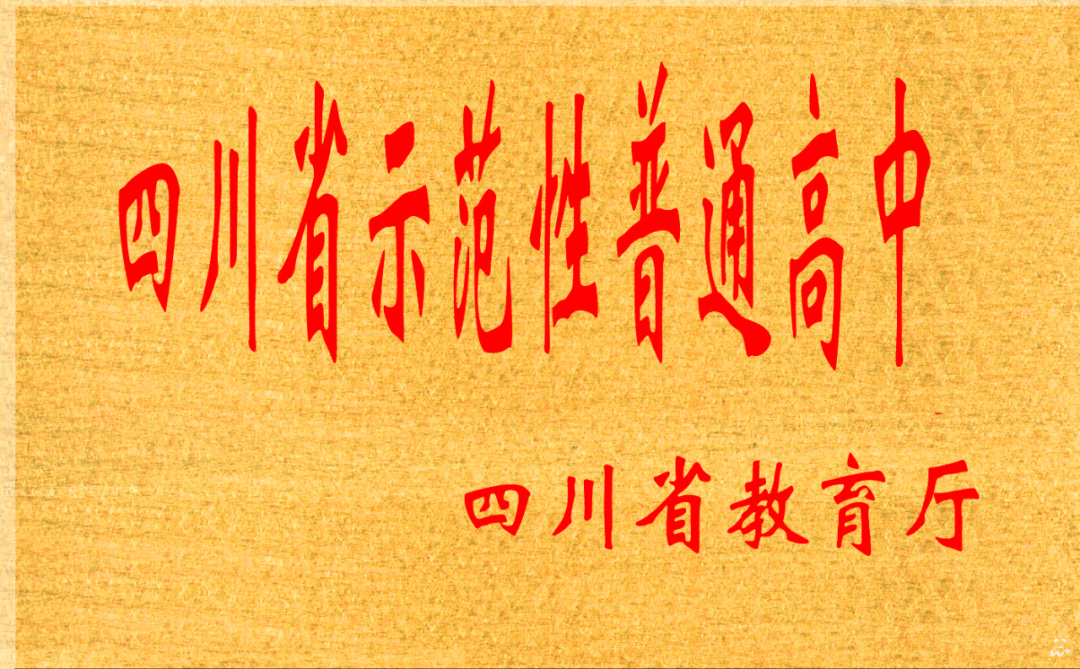 四川省示范性普通高中
四川省教育厅